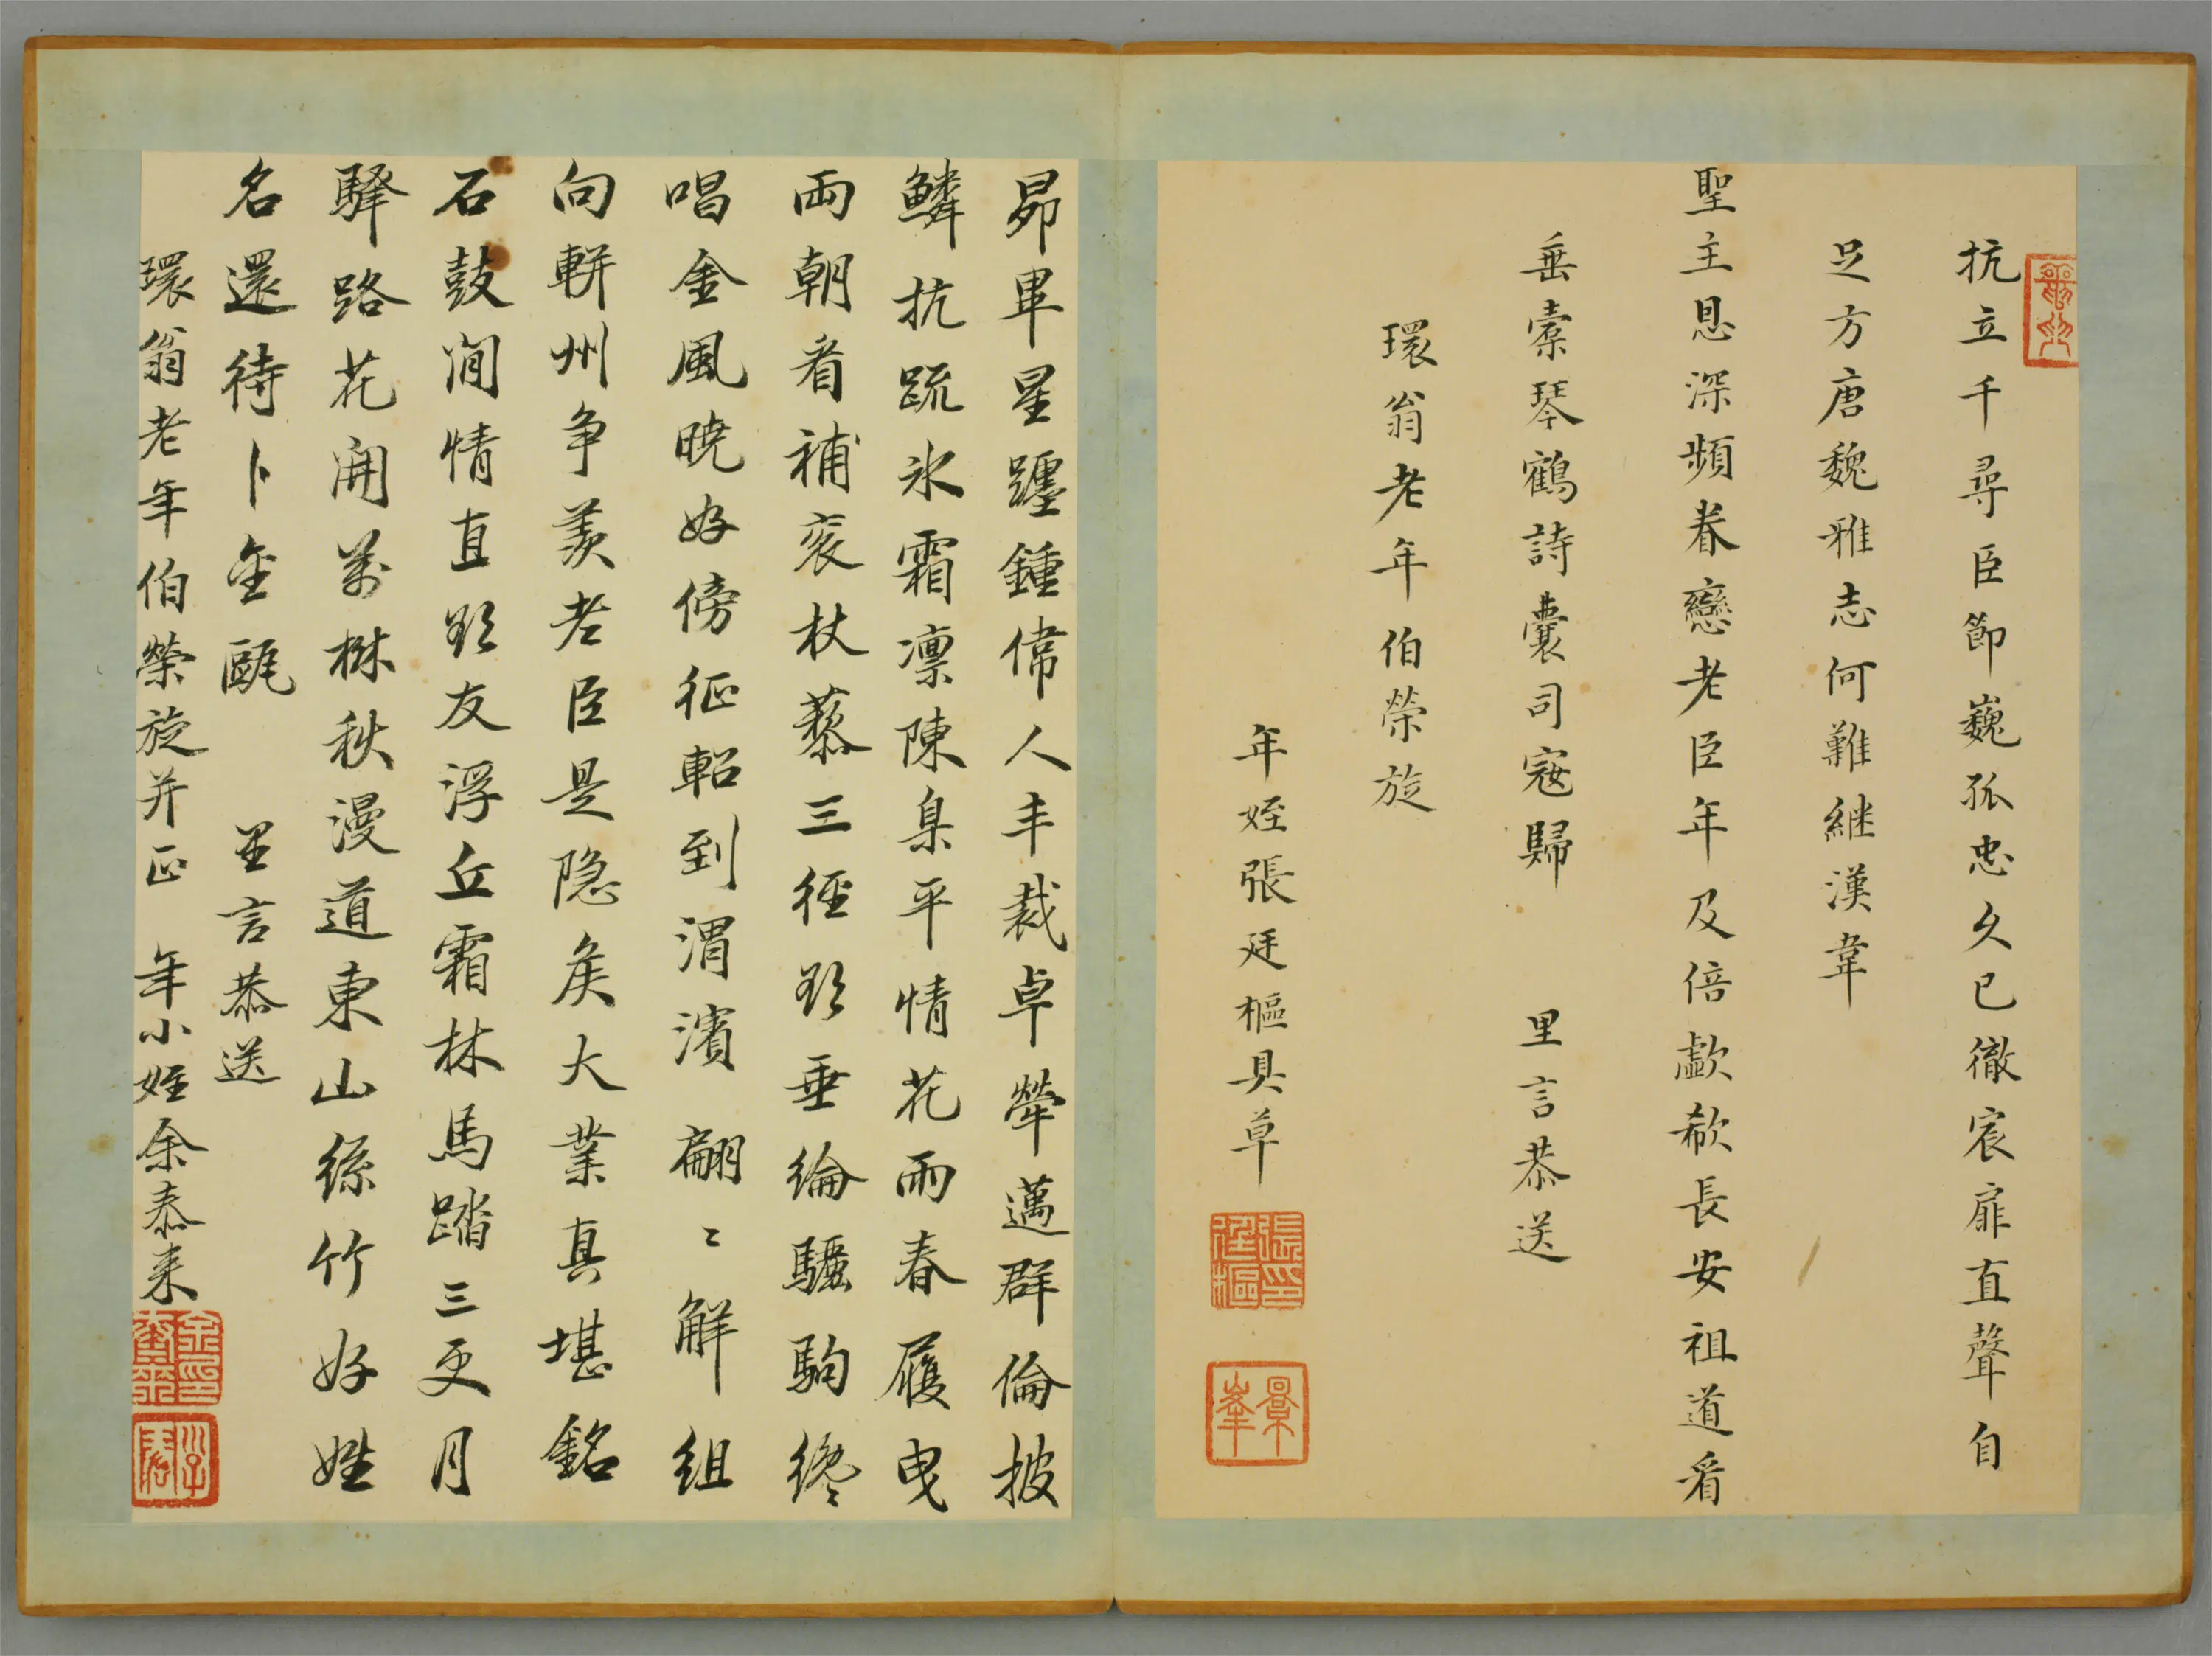 抗立千尋臣節巍孤忠久已徹宸扉直聲自
足方唐魏雅志何難継漢韋
聖主恩深頻眷戀老臣年及倍歔欷長安祖道看
垂橐琴鶴詩囊司寇歸　里言恭送
環翁老年伯榮旋
年姪張廷樞具草
張廷樞印
景峯
昴畢星躔鍾偉人丰裁卓犖邁群倫披
鱗抗疏氷霜凛陳臬平情花雨春履曳
兩朝看補衮杖藜三徑欣垂綸驪駒纔
唱金風曉好傍征軺到渭濱　翩〻解組
向軿州争羡老臣是隐矦大業真堪銘
石鼓閒情直欲友浮丘霜林馬踏三更月
驛路花開萬樹秋漫道東山絲竹好姓
名還待卜金甌　里言恭送
環翁老年伯榮旋并正　年小姪余泰来
余泰来印